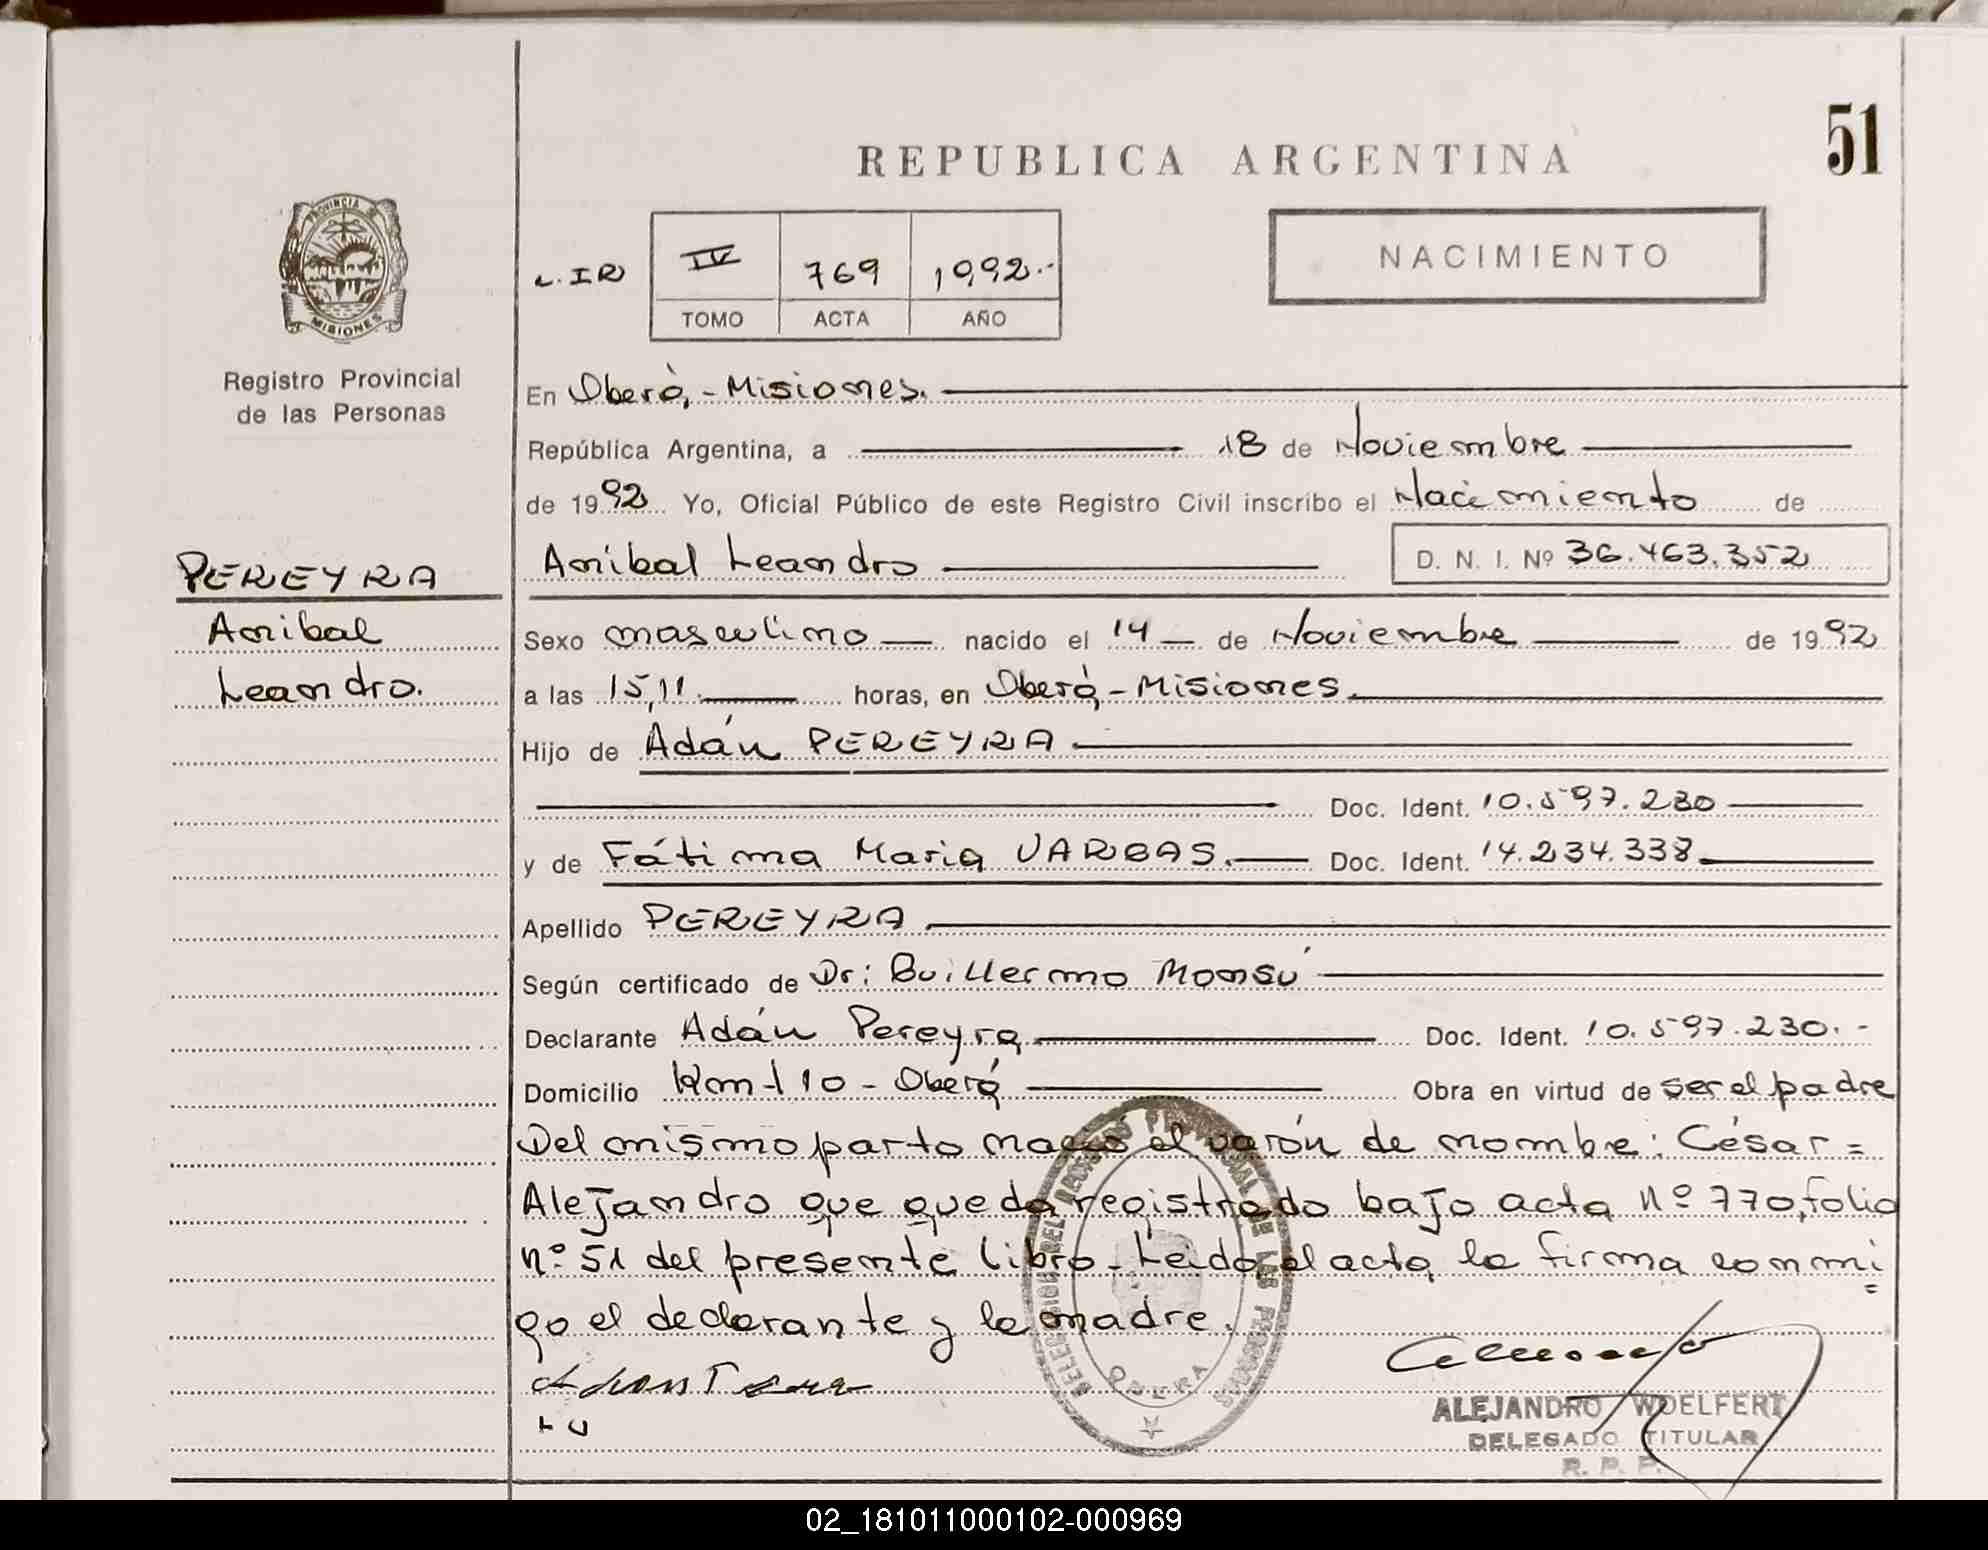 51
REPUBLICA ARGENTINA
PROVINCIA DE
MISIONES
Registro Provincial
de las Personas
L. IR
IV 769 1992.-
TOMO ACTA AÑO
NACIMIENTO
En Oberá,-Misiones.
República Argentina, a 18 de Noviembre
de 1992 Yo, Oficial Público de este Registro Civil inscribo el Nacimiento de
PEREYRA
Aníbal Leandro D. N. I. Nº 36.463.352
Anibal
Leandro.
Sexo masculino nacido el 14 de Noviembre de 1992
a las 15,11. horas, en Oberá,-Misiones.
Hijo de Adán PEREYRA
Doc. Ident. 10.597.230
y de Fátima Maria VARGAS. Doc. Ident. 14.234.338
Apellido PEREYRA
Según certificado de Dr: Guillermo Monsú
Declarante Adán Pereyra Doc. Ident. 10.597.230.-
Domicilio Km-110-Oberá Obra en virtud de ser el padre
Del mismo parto nació el varón de nombre: César=
Alejandro que queda registrado bajo acta Nº 770, folio
nº 51 del presente libro- Leida el acta la firma conmi=
go el declarante y la madre.
ALEJANDRO WOELFERT
DELEGADO TITULAR
R. P. P.
OBERA
02_181011000102-000969